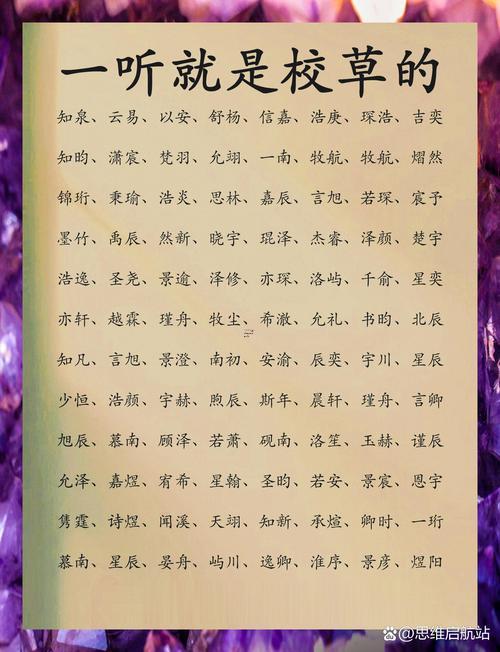 一听就是校草的
知泉、云易、以安、舒杨、信嘉、浩庚、琛浩、吉奕
知昀、潇宸、梵羽、允翊、一南、牧航、牧航、熠然
锦珩、秉瑜、浩炎、思林、嘉辰、言旭、若琛、宸予
墨竹、禹辰、然新、晓宇、琨泽、杰睿、泽颜、楚宇
浩逸、圣尧、景逾、泽修、亦琛、洛屿、千俞、星奕
亦轩、越霖、瑾舟、牧尘、希澈、允礼、书昀、北辰
知凡、言旭、景澄、南初、安渝、辰奕、宇川、星辰
少恒、浩颜、宇赫、煦辰、斯年、晨轩、瑾舟、言卿
旭辰、慕南、顾泽、若萧、砚南、洛笙、玉赫、谨辰
允泽、嘉煜、宥希、星翰、圣昀、若安、景宸、恩宇
隽霆、诗煜、闻溪、天翊、知新、承煊、卿时、一珩
慕南、星辰、晏舟、屿川、逸卿、淮序、景彦、煜阳
思维启航站